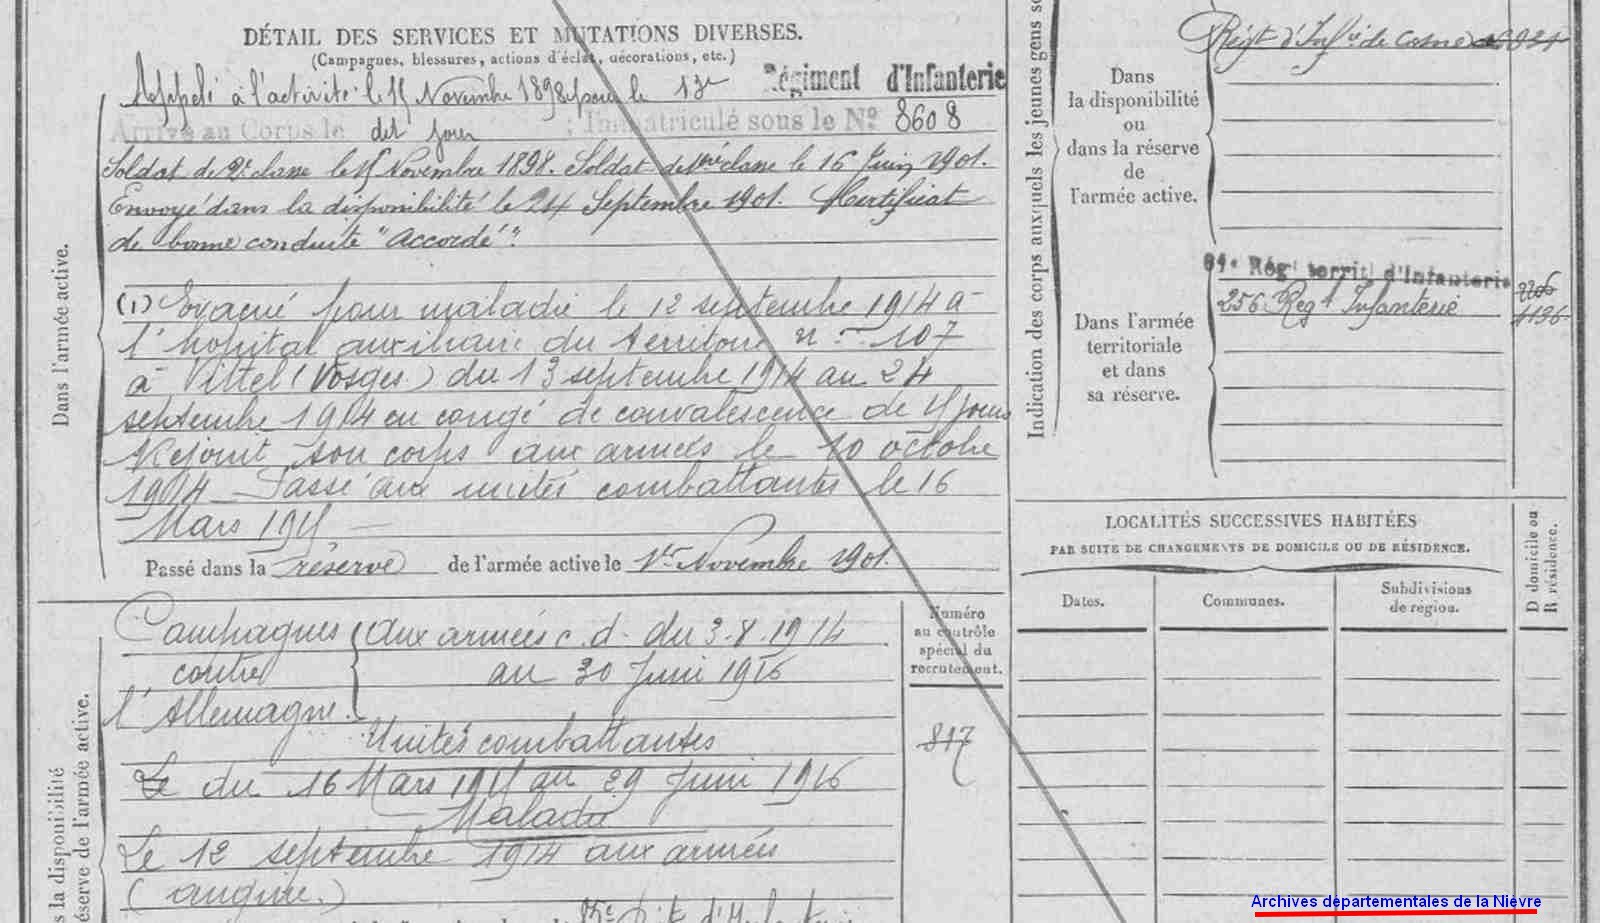 DÉTAIL DES SERVICES ET MUTATIONS DIVERSES.
(Campagnes, blessures, actions d'éclat, décorations, etc.)
Appelé à l'activité le 15 Novembre 1898 pour le 13e Régiment d'Infanterie
Arrivé au Corps le dit jour ; Immatriculé sous le No 8608
Soldat de 2e classe le 15 Novembre 1898. Soldat de 1ère classe le 16 Juin 1901.
Envoyé dans la disponibilité le 24 Septembre 1901. Certificat
de bonne conduite "Accordé".
(1) Evacué pour maladie le 12 septembre 1914 à
l'hôpital auxiliaire du territoire no 107
à Vittel (Vosges) du 13 septembre 1914 au 24
septembre 1914 en congé de convalescence de 15 jours
Rejoint son corps aux armées le 10 octobre
1914 Passé aux unités combattantes le 16
Mars 1915
Passé dans la réserve de l'armée active le 1er Novembre 1901.
Dans l'armée active.
Campagnes contre l'Allemagne
Aux armées c. d. du 3.8.1914
au 30 Juin 1916
Unités combattantes
du 16 Mars 1915 au 29 Juin 1916
Maladie
Le 12 septembre 1914 aux armées
(angine.)
d'Infanterie
s la disponibilité
éserve de l'armée active.
Numéro
au contrôle
spécial du
recrutement.
817
Indication des corps auxquels les jeunes gens so
Régt d'Infie de Cosne
Dans
la disponibilité
ou
dans la réserve
de
l'armée active.
64e Régt territ d'Infanterie 2206
256 Regt Infanterie 4136
Dans l'armée
territoriale
et dans
sa réserve.
LOCALITÉS SUCCESSIVES HABITÉES
PAR SUITE DE CHANGEMENTS DE DOMICILE OU DE RÉSIDENCE.
Dates.
Communes.
Subdivisions
de région.
D domicile ou
R résidence.
Archives départementales de la Nièvre